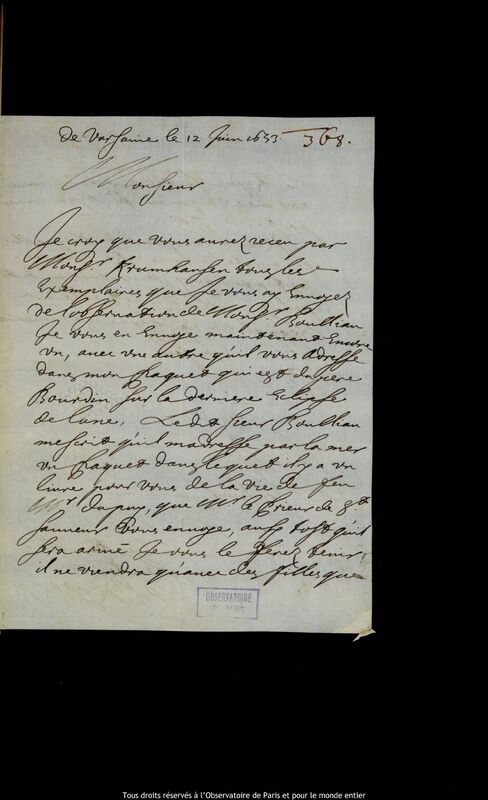 de Varsavie le 12 Juin 1653. 368.
Monsieur
Je croy que vous aurez receu par
Monsr. Krumhausen tous les
Exemplaires que Je vous ay Envoyez
de l'observation de Monsr Boulliau
Je vous en Envoye maintenant Encore
vn, avec vne autre qu'il vous adresse
dans mon paquet qui est du pere
Bourdin sur la derniere Eclipse
de lune, Ledit sieur Boulliau
mescrit qu'il m'adresse par la mer
vn paquet dans lequel il y a vn
liure pour vous de la vie de feu
Mr. dupuy, que Mr. le Prieur de St
sauueur vous ennoye, aussi tost qu'il
sera arriué Je vous le feray tenir,
il ne viendra qu'auec des filles que
OBSERVATOIRE
DE PARIS
Tous droits réservés à l'Observatoire de Paris et pour le monde entier